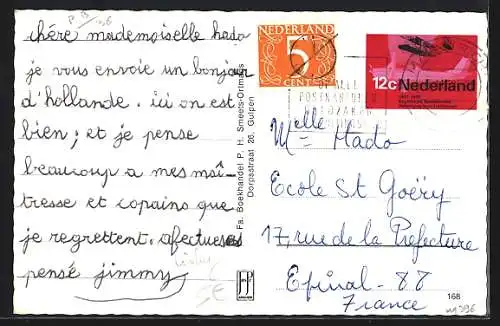 chére mademoiselle hado
je vous envoie un bonjour
d'hollande. ici on est
bien; et je pense
beaucoup a mes maî-
tresse et copains que
je regrettent. afectueuses
pensé jimmy
Fa. Boekhandel P. H. Smeets-Ortmans
Dorpsstraat 26, Gulpen
NEDERLAND
5
CENT
12c Nederland
Melle Hado
Ecole St Goëry
17, rue de la Préfecture
Epinal-88
France
168